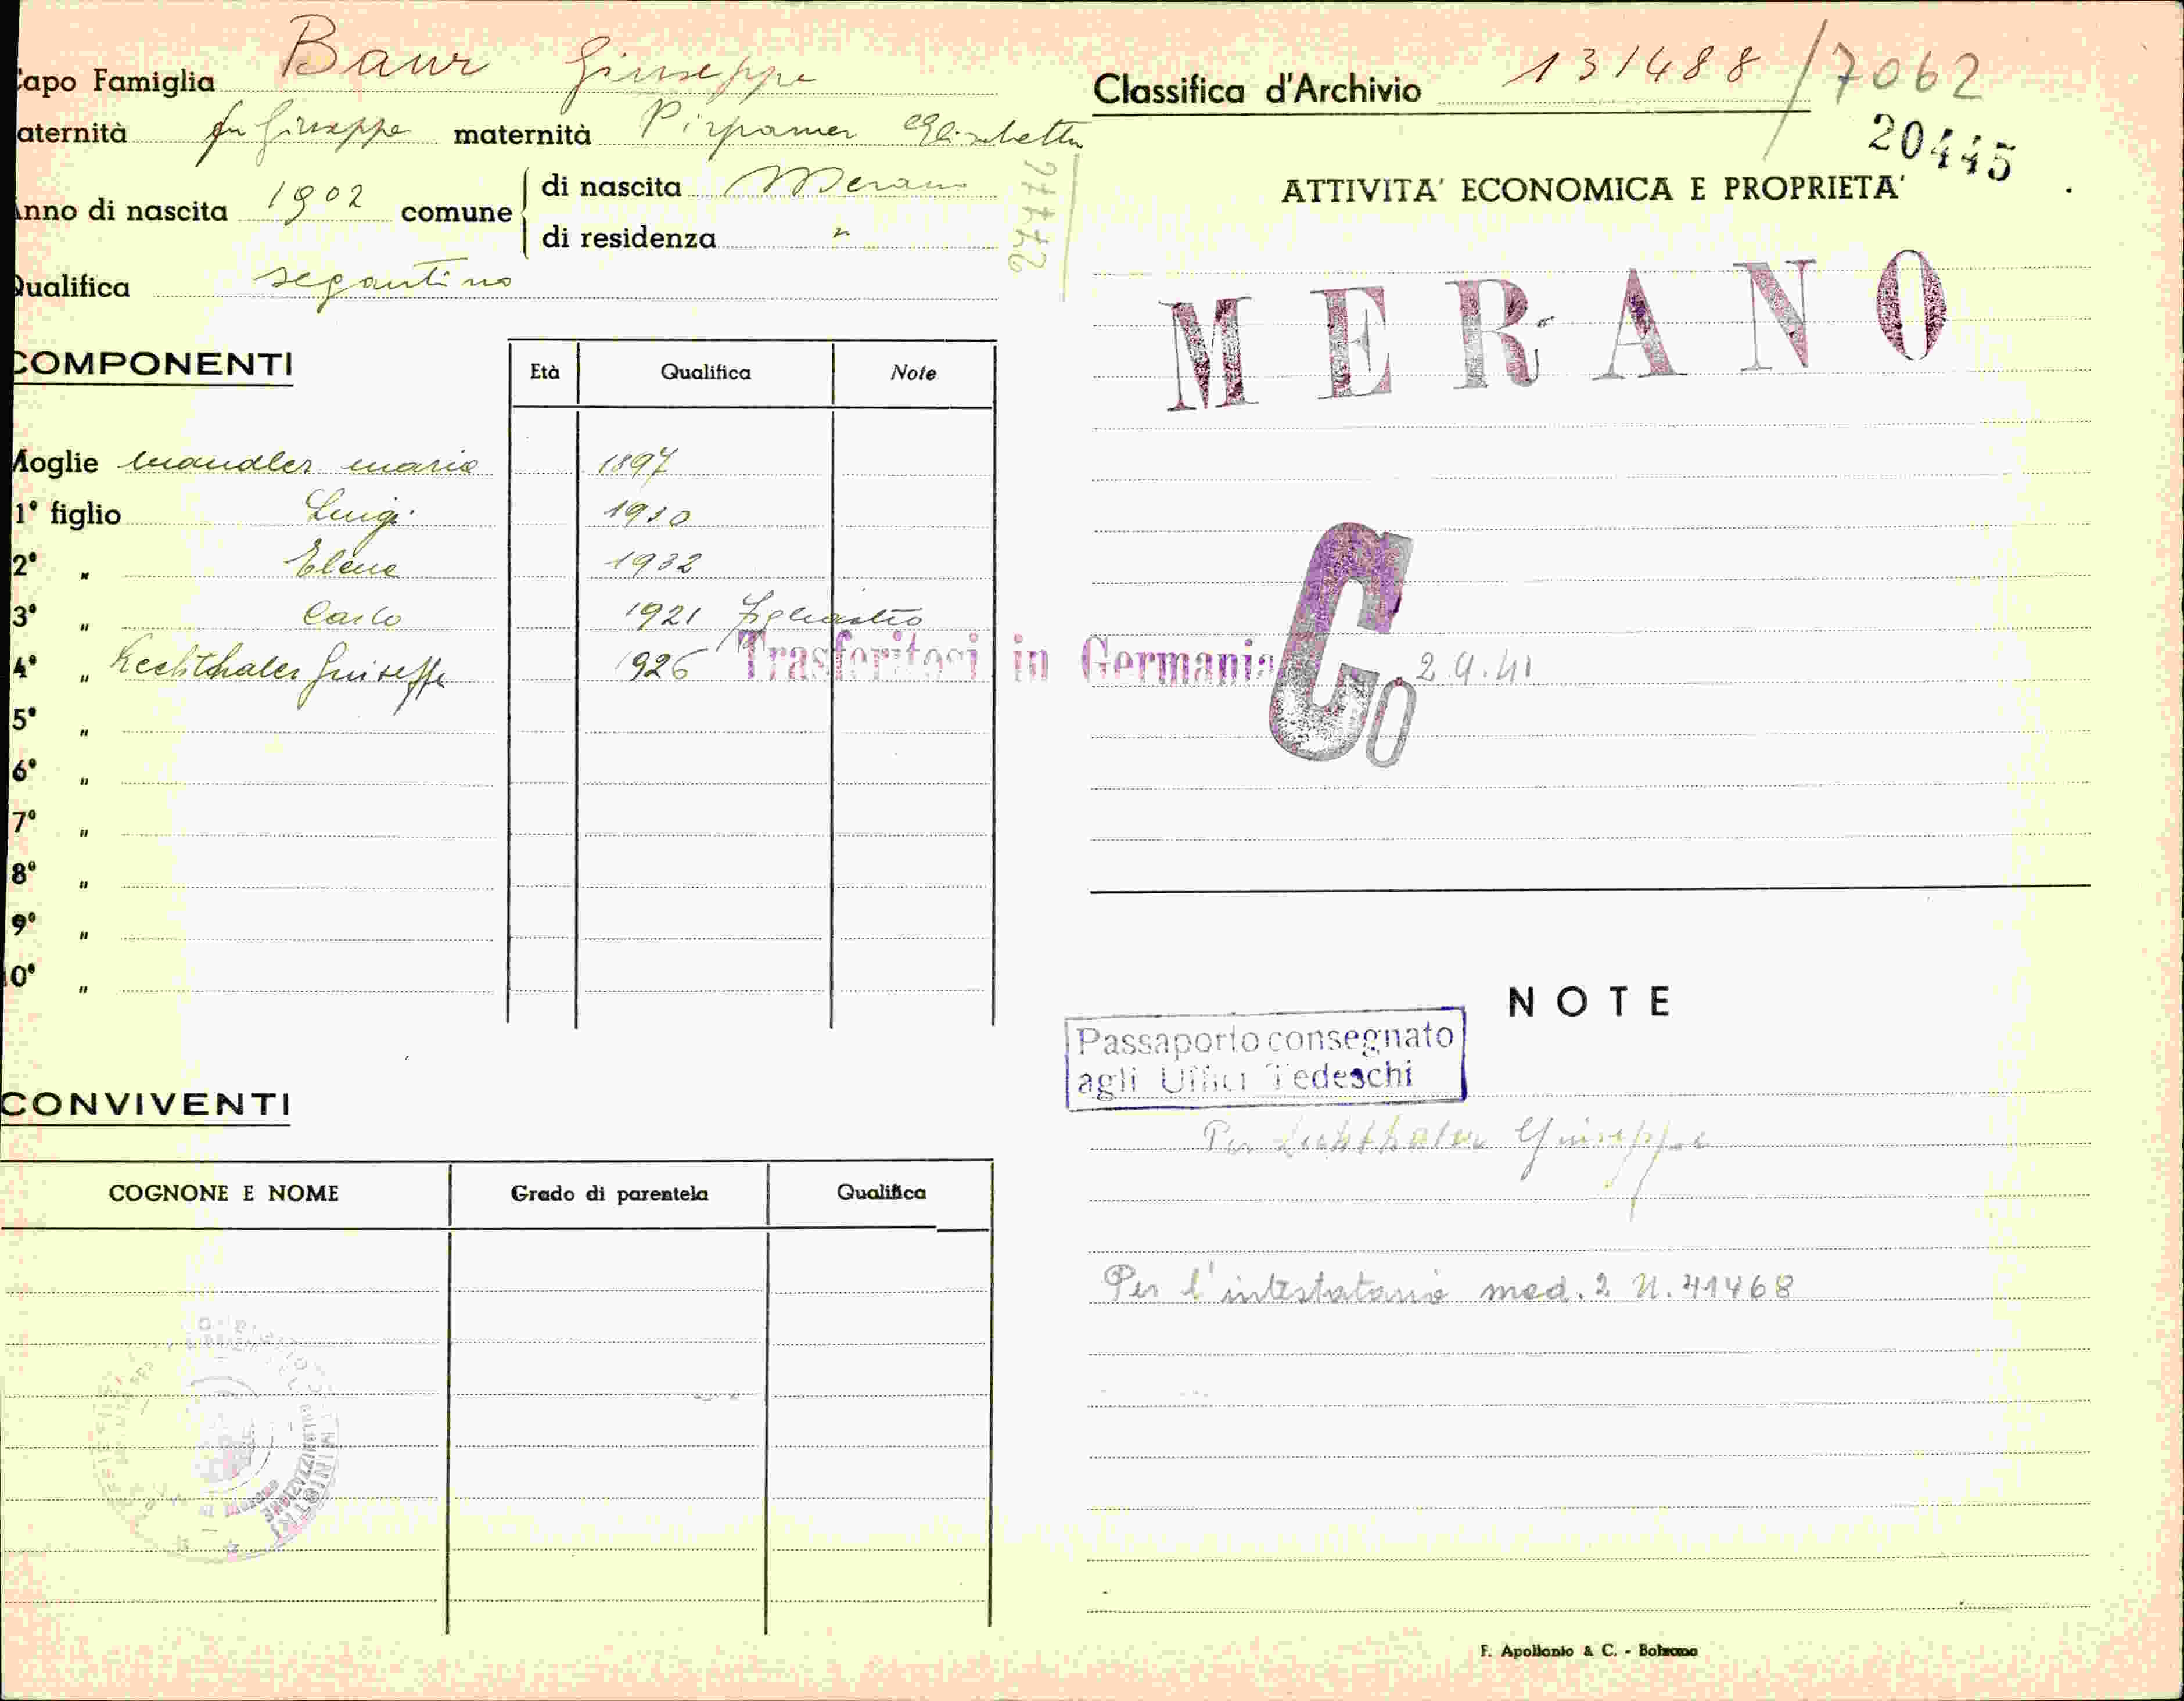 Capo Famiglia Baur Giuseppe
aternità fu Giuseppe maternità Pirpamer Elisabetta
Anno di nascita 1902 comune di nascita Merano
di residenza "
Qualifica segantino
COMPONENTI
Età Qualifica Note
Moglie Mandler Maria 1897
1° figlio Luigi 1930
2° " Elena 1932
3° " Carlo 1921 figliastro
4° " Lechthaler Giuseppe 1926 "
5° "
6° "
7° "
8° "
9° "
10° "
Trasferitosi in Germania 2.9.41
CONVIVENTI
COGNONE E NOME Grado di parentela Qualifica
Classifica d'Archivio 131488/7062
20445
ATTIVITA' ECONOMICA E PROPRIETA'
MERANO
Co
NOTE
Passaporto consegnato
agli Uffici Tedeschi
Per Lechthaler Giuseppe
Per l'intestatario mod. 2 N. 41468
F. Apollonio & C. - Bolzano